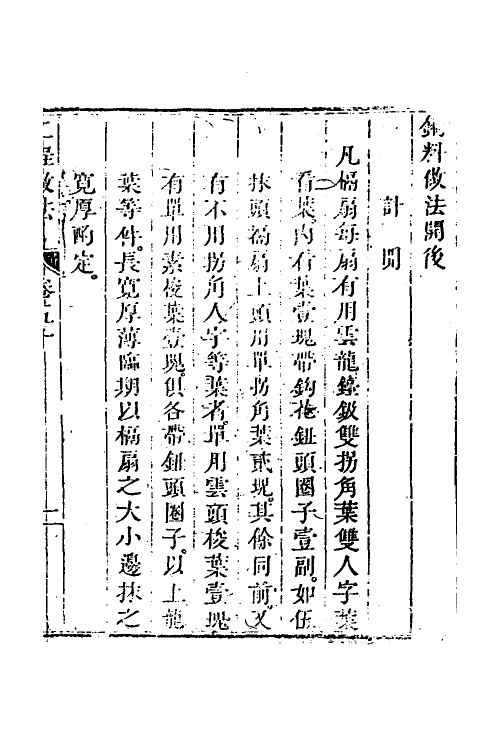 銅料做法開後
計開
凡槅扇每扇有用雲龍鋄鈒雙拐角葉雙人字葉
看葉內看葉壹塊帶鈎花鈕頭圈子壹副如伍
抹頭槅扇上頭用單拐角葉貳塊其餘同前又
有不用拐角人字等葉者單用雲頭梭葉壹塊
有單用素梭葉壹塊俱各帶鈕頭圈子以上龍
葉等件長寬厚薄臨期以槅扇之大小邊抹之
寬厚酌定
工程做法 卷五十